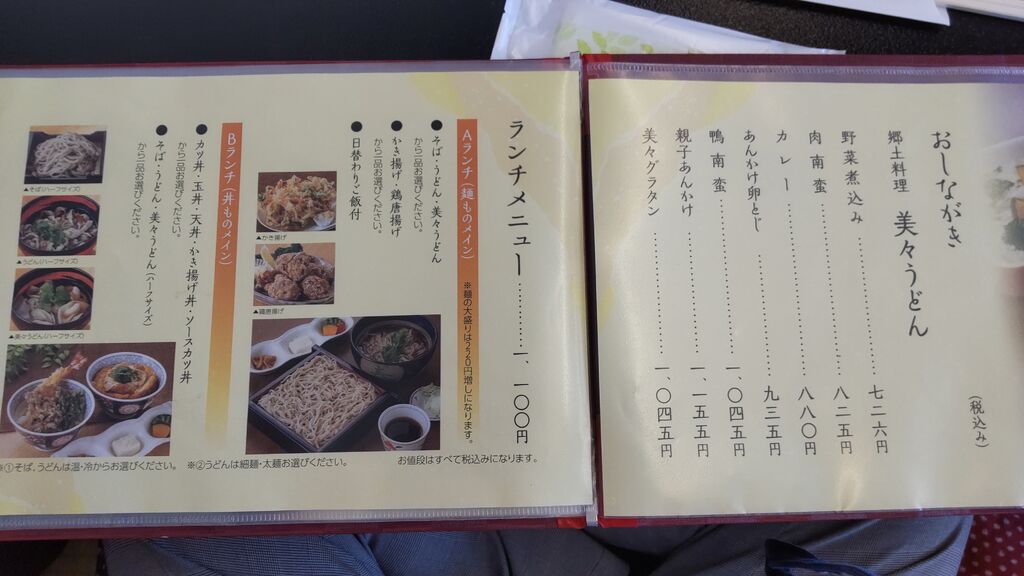 おしながき
郷土料理 美々うどん
(税込み)
野菜煮込み 七二六円
肉南蛮 八二五円
カレー 八八〇円
あんかけ卵とじ 九三五円
鴨南蛮 一、〇四五円
親子あんかけ 一、一五五円
美々グラタン 一、〇四五円
ランチメニュー 一、一〇〇円
Aランチ(麺ものメイン) ※麺の大盛りは220円増しになります。
●そば・うどん・美々うどん
から一品お選びください。
●かき揚げ・鶏唐揚げ
から一品お選びください。
●日替わりご飯付
▲かき揚げ
▲鶏唐揚げ
Bランチ(丼ものメイン)
●カツ丼・玉丼・天丼・かき揚げ丼・ソースカツ丼
から一品お選びください。
●そば・うどん・美々うどん(ハーフサイズ)
から一品お選びください。
▲そば(ハーフサイズ)
▲うどん(ハーフサイズ)
▲美々うどん(ハーフサイズ)
※①そば、うどんは温・冷からお選びください。 ※②うどんは細麺・太麺お選びください。 お値段はすべて税込みになります。